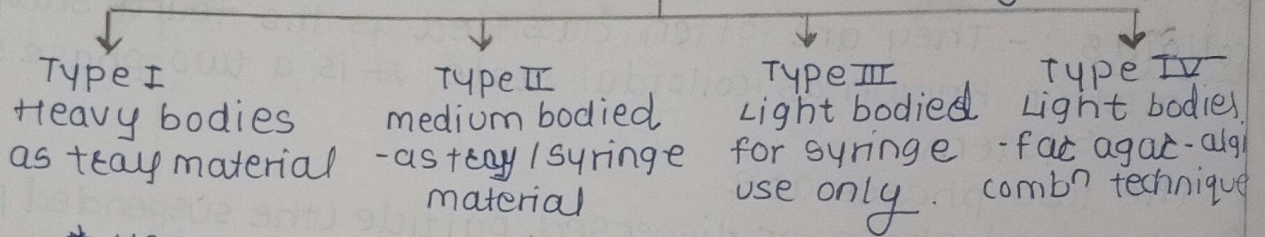 Type I
Heavy bodies
as tray material
Type II
medium bodied
-as tray / syringe
material
Type III
Light bodied
for syringe
use only.
Type IV
Light bodies
-for agar-algi
combⁿ technique